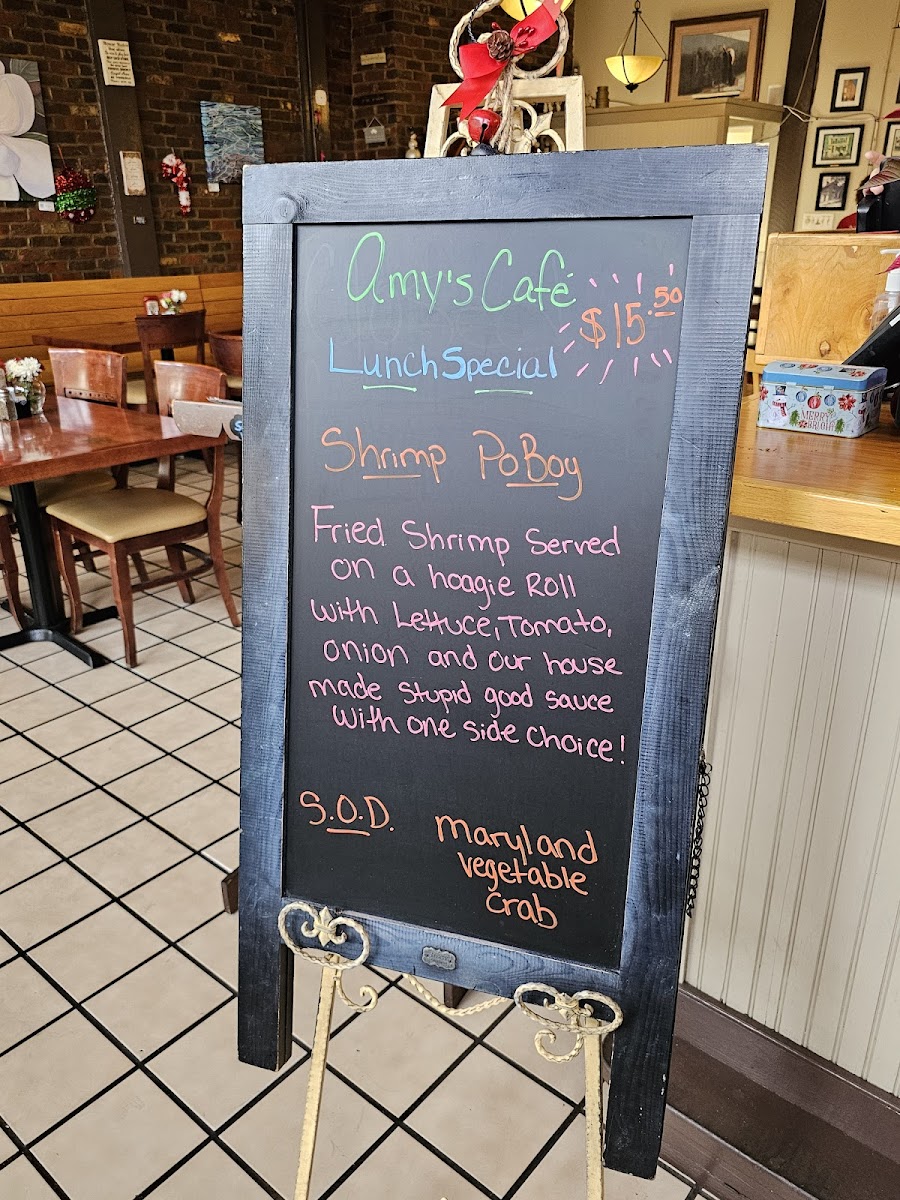 Amy's Café
$15.50
Lunch Special
Shrimp PoBoy
Fried Shrimp Served
on a hoagie Roll
with Lettuce, Tomato,
onion and our house
made Stupid good sauce
with one side choice!
S.O.D.
Maryland
vegetable
crab
MERRY
BRIGHT